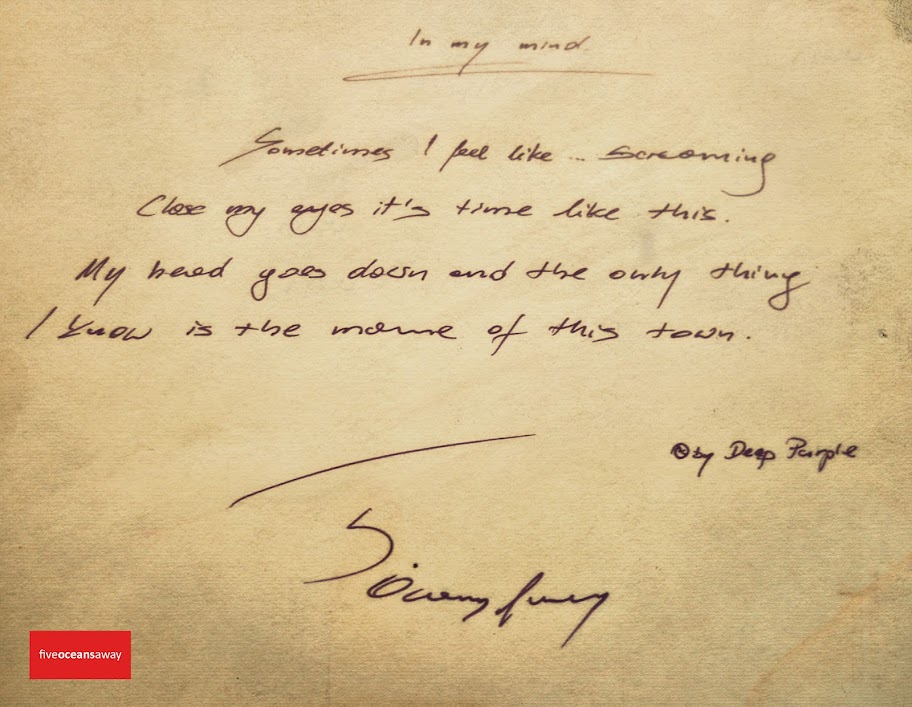 In my mind
Sometimes I feel like ... screaming
Close my eyes it's time like this.
My head goes down and the only thing
I know is the name of this town.
© by Deep Purple
fiveoceansaway